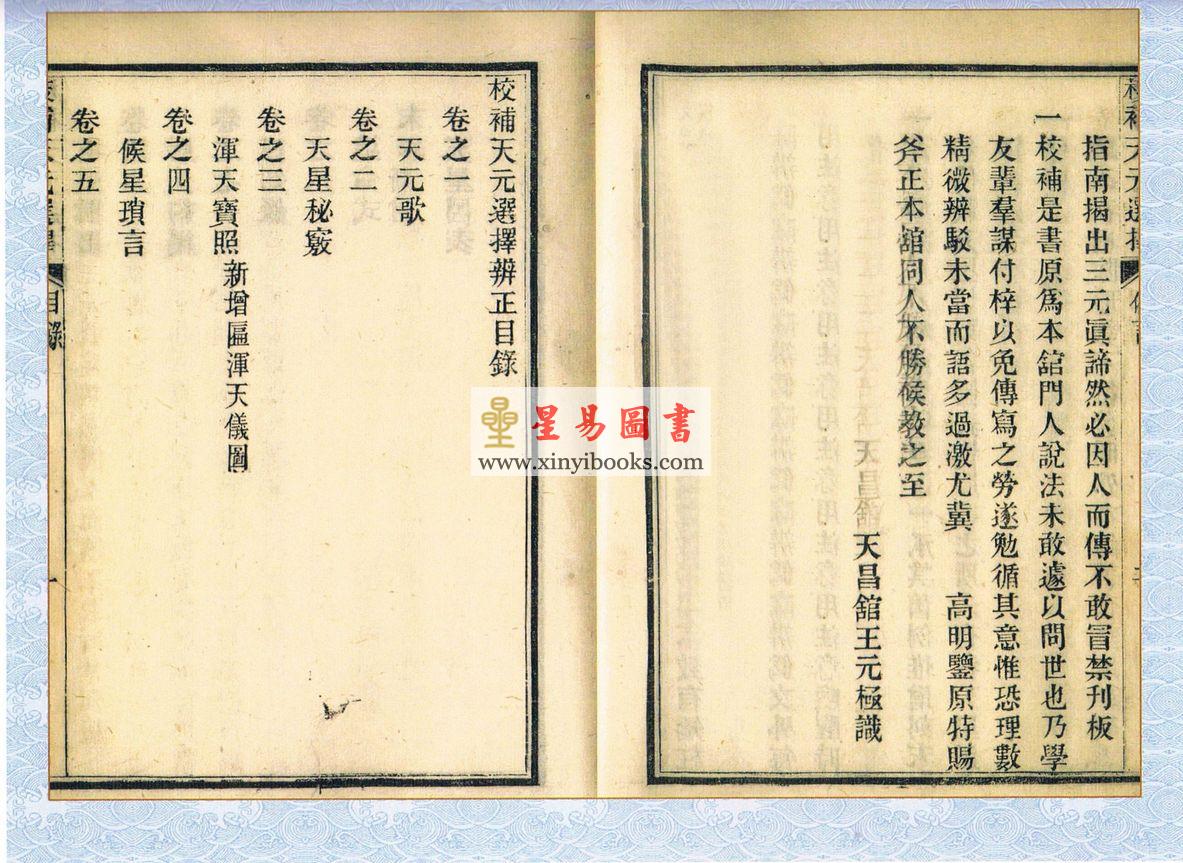 指南揭出三元眞諦然必因人而傳不敢冒禁刊板
一校補是書原爲本舘門人說法未敢遽以問世也乃學
友輩羣謀付梓以免傳寫之勞遂勉循其意惟恐理數
精微辨駁未當而語多過激尤冀 高明鑒原特賜
斧正本舘同人不勝候教之至
天昌舘王元極識
校補天元選擇辨正目錄
卷之一
天元歌
卷之二
天星秘竅
卷之三
渾天寶照 新增區渾天儀圖
卷之四
候星瑣言
卷之五
目錄
一
星易圖書
www.xinyibooks.com